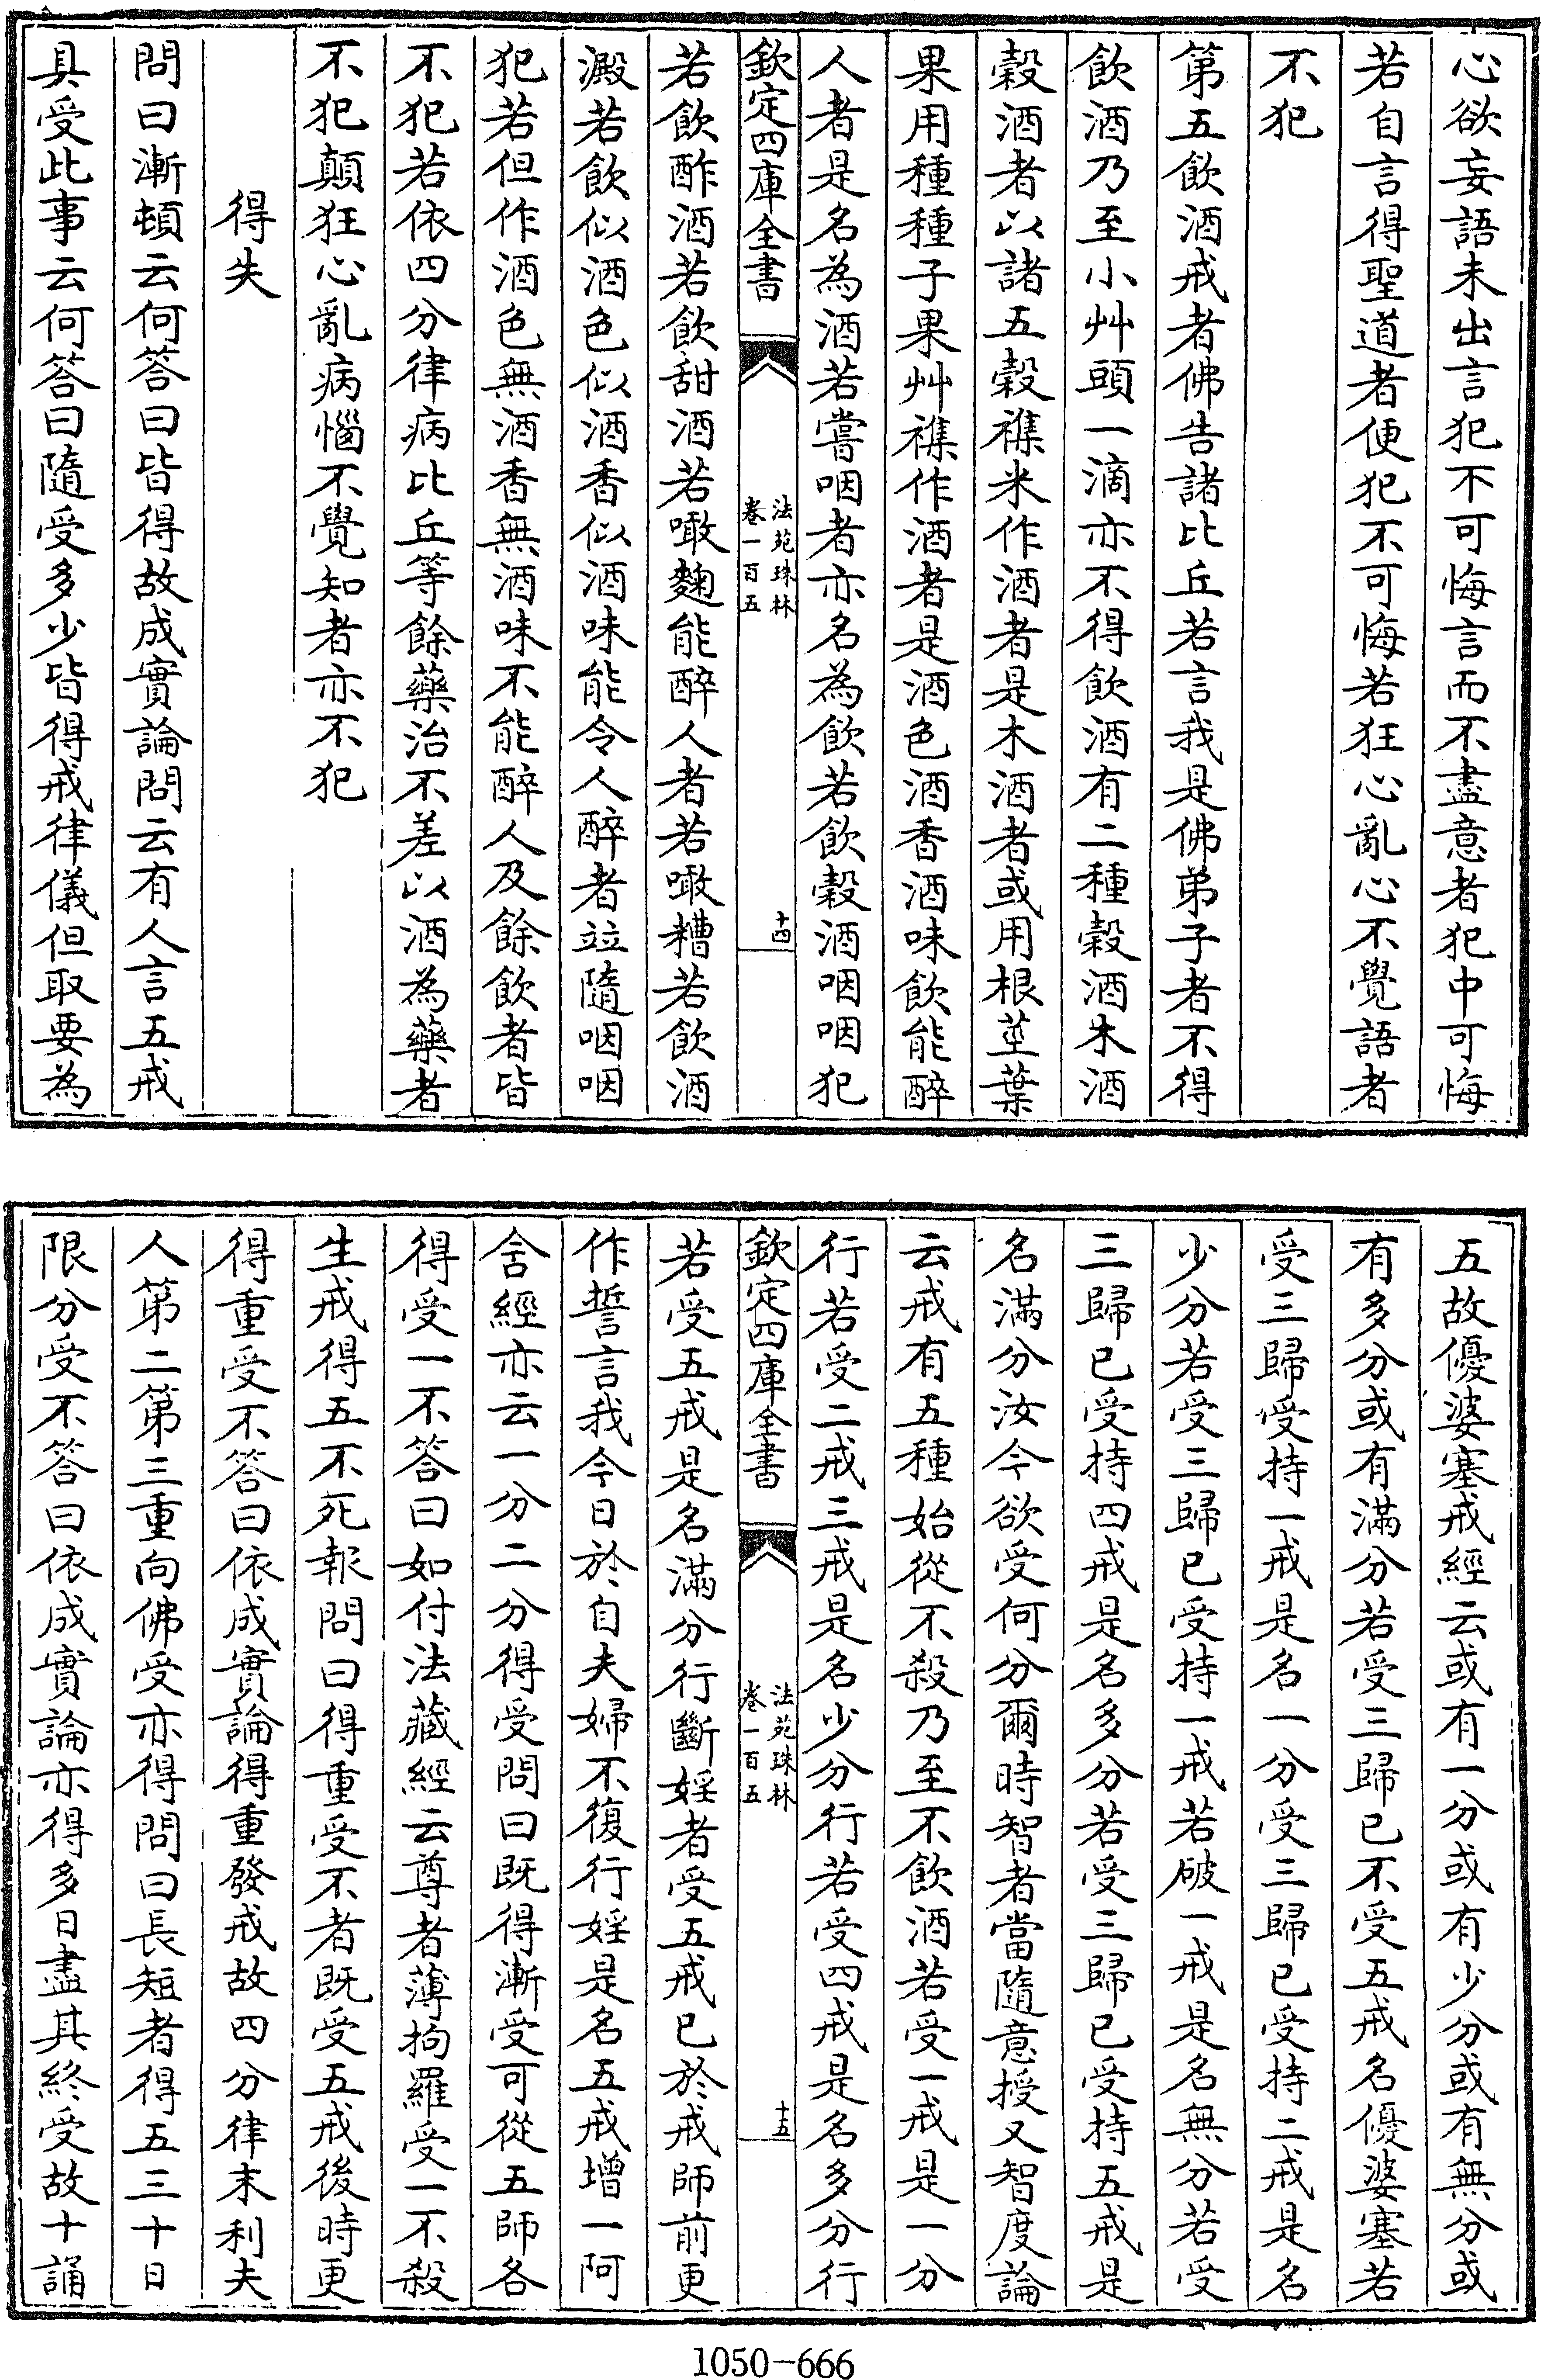 心欲妄語未出言犯不可悔言而不盡意者犯中可悔
若自言得聖道者便犯不可悔若狂心亂心不覺語者
不犯
第五飲酒戒者佛告諸比丘若言我是佛弟子者不得
飲酒乃至小艸頭一滴亦不得飲酒有二種穀酒木酒
穀酒者以諸五穀襍米作酒者是木酒者或用根莖葉
果用種種子果艸襍作酒者是酒色酒香酒味飲能醉
人者是名為酒若嘗咽者亦名為飲若飲穀酒咽咽犯
欽定四庫全書
法苑珠林
卷一百五
十四
若飲酢酒若飲甜酒若噉麴能醉人者若噉糟若飲酒
澱若飲似酒色似酒香似酒味能令人醉者竝隨咽咽
犯若但作酒色無酒香無酒味不能醉人及餘飲者皆
不犯若依四分律病比丘等餘藥治不差以酒為藥者
不犯顛狂心亂病惱不覺知者亦不犯
得失
問曰漸頓云何答曰皆得故成實論問云有人言五戒
具受此事云何答曰隨受多少皆得戒律儀但取要為
五故優婆塞戒經云或有一分或有少分或有無分或
有多分或有滿分若受三歸已不受五戒名優婆塞若
受三歸受持一戒是名一分受三歸已受持二戒是名
少分若受三歸已受持一戒若破一戒是名無分若受
三歸已受持四戒是名多分若受三歸已受持五戒是
名滿分汝今欲受何分爾時智者當隨意授又智度論
云戒有五種始從不殺乃至不飲酒若受一戒是一分
行若受二戒三戒是名少分行若受四戒是名多分行
欽定四庫全書
法苑珠林
卷一百五
十五
若受五戒是名滿分行斷婬者受五戒已於戒師前更
作誓言我今日於自夫婦不復行婬是名五戒增一阿
舍經亦云一分二分得受問曰既得漸受可從五師各
得受一不答曰如付法藏經云尊者薄拘羅受一不殺
生戒得五不死報問曰得重受不者既受五戒後時更
得重受不答曰依成實論得重發戒故四分律末利夫
人第二第三重向佛受亦得問曰長短者得五三十日
限分受不答曰依成實論亦得多日盡其終受故十誦
1050-666